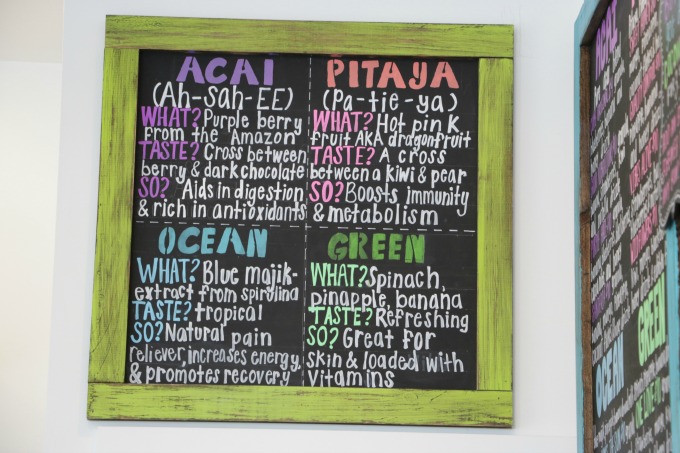 ACAI
(Ah-Sah-EE)
WHAT? Purple berry
from the Amazon
TASTE? Cross between
berry & dark chocolate
SO? Aids in digestion
& rich in antioxidants
PITAYA
(Pa-tie-ya)
WHAT? Hot pink
fruit AKA dragonfruit
TASTE? A cross
between a kiwi & pear
SO? Boosts immunity
& metabolism
OCEAN
WHAT? Blue majik-
extract from spirulina
TASTE? tropical
SO? Natural pain
reliever, increases energy,
& promotes recovery
GREEN
WHAT? Spinach,
pinapple, banana
TASTE? Refreshing
SO? Great for
skin & loaded with
vitamins
ACAI
OCEAN
GREEN